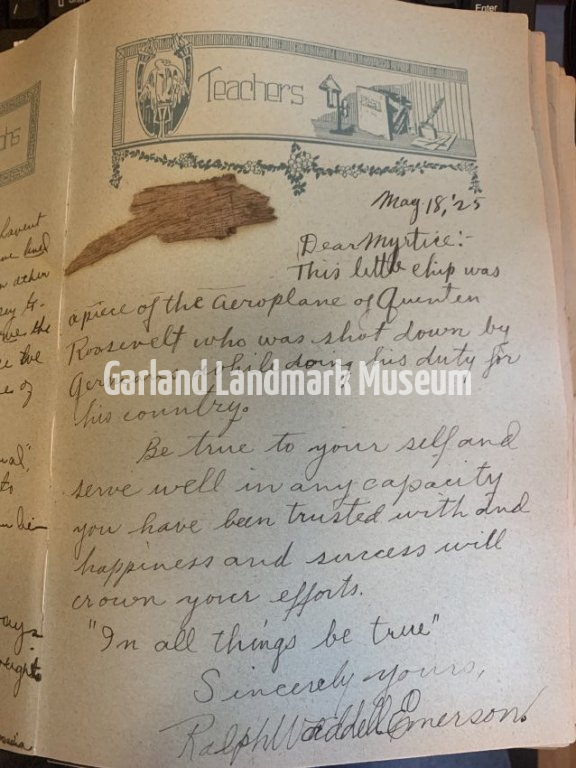 Teachers
May 18, '25
Dear Myrtice:-
This little chip was
a piece of the aeroplane of Quenten
Roosevelt who was shot down by
Germans while doing his duty for
his country.
Garland Landmark Museum
Be true to your self and
serve well in any capacity
you have been trusted with and
happiness and success will
crown your efforts.
"In all things be true"
Sincerely yours,
Ralph Waddell Emerson.